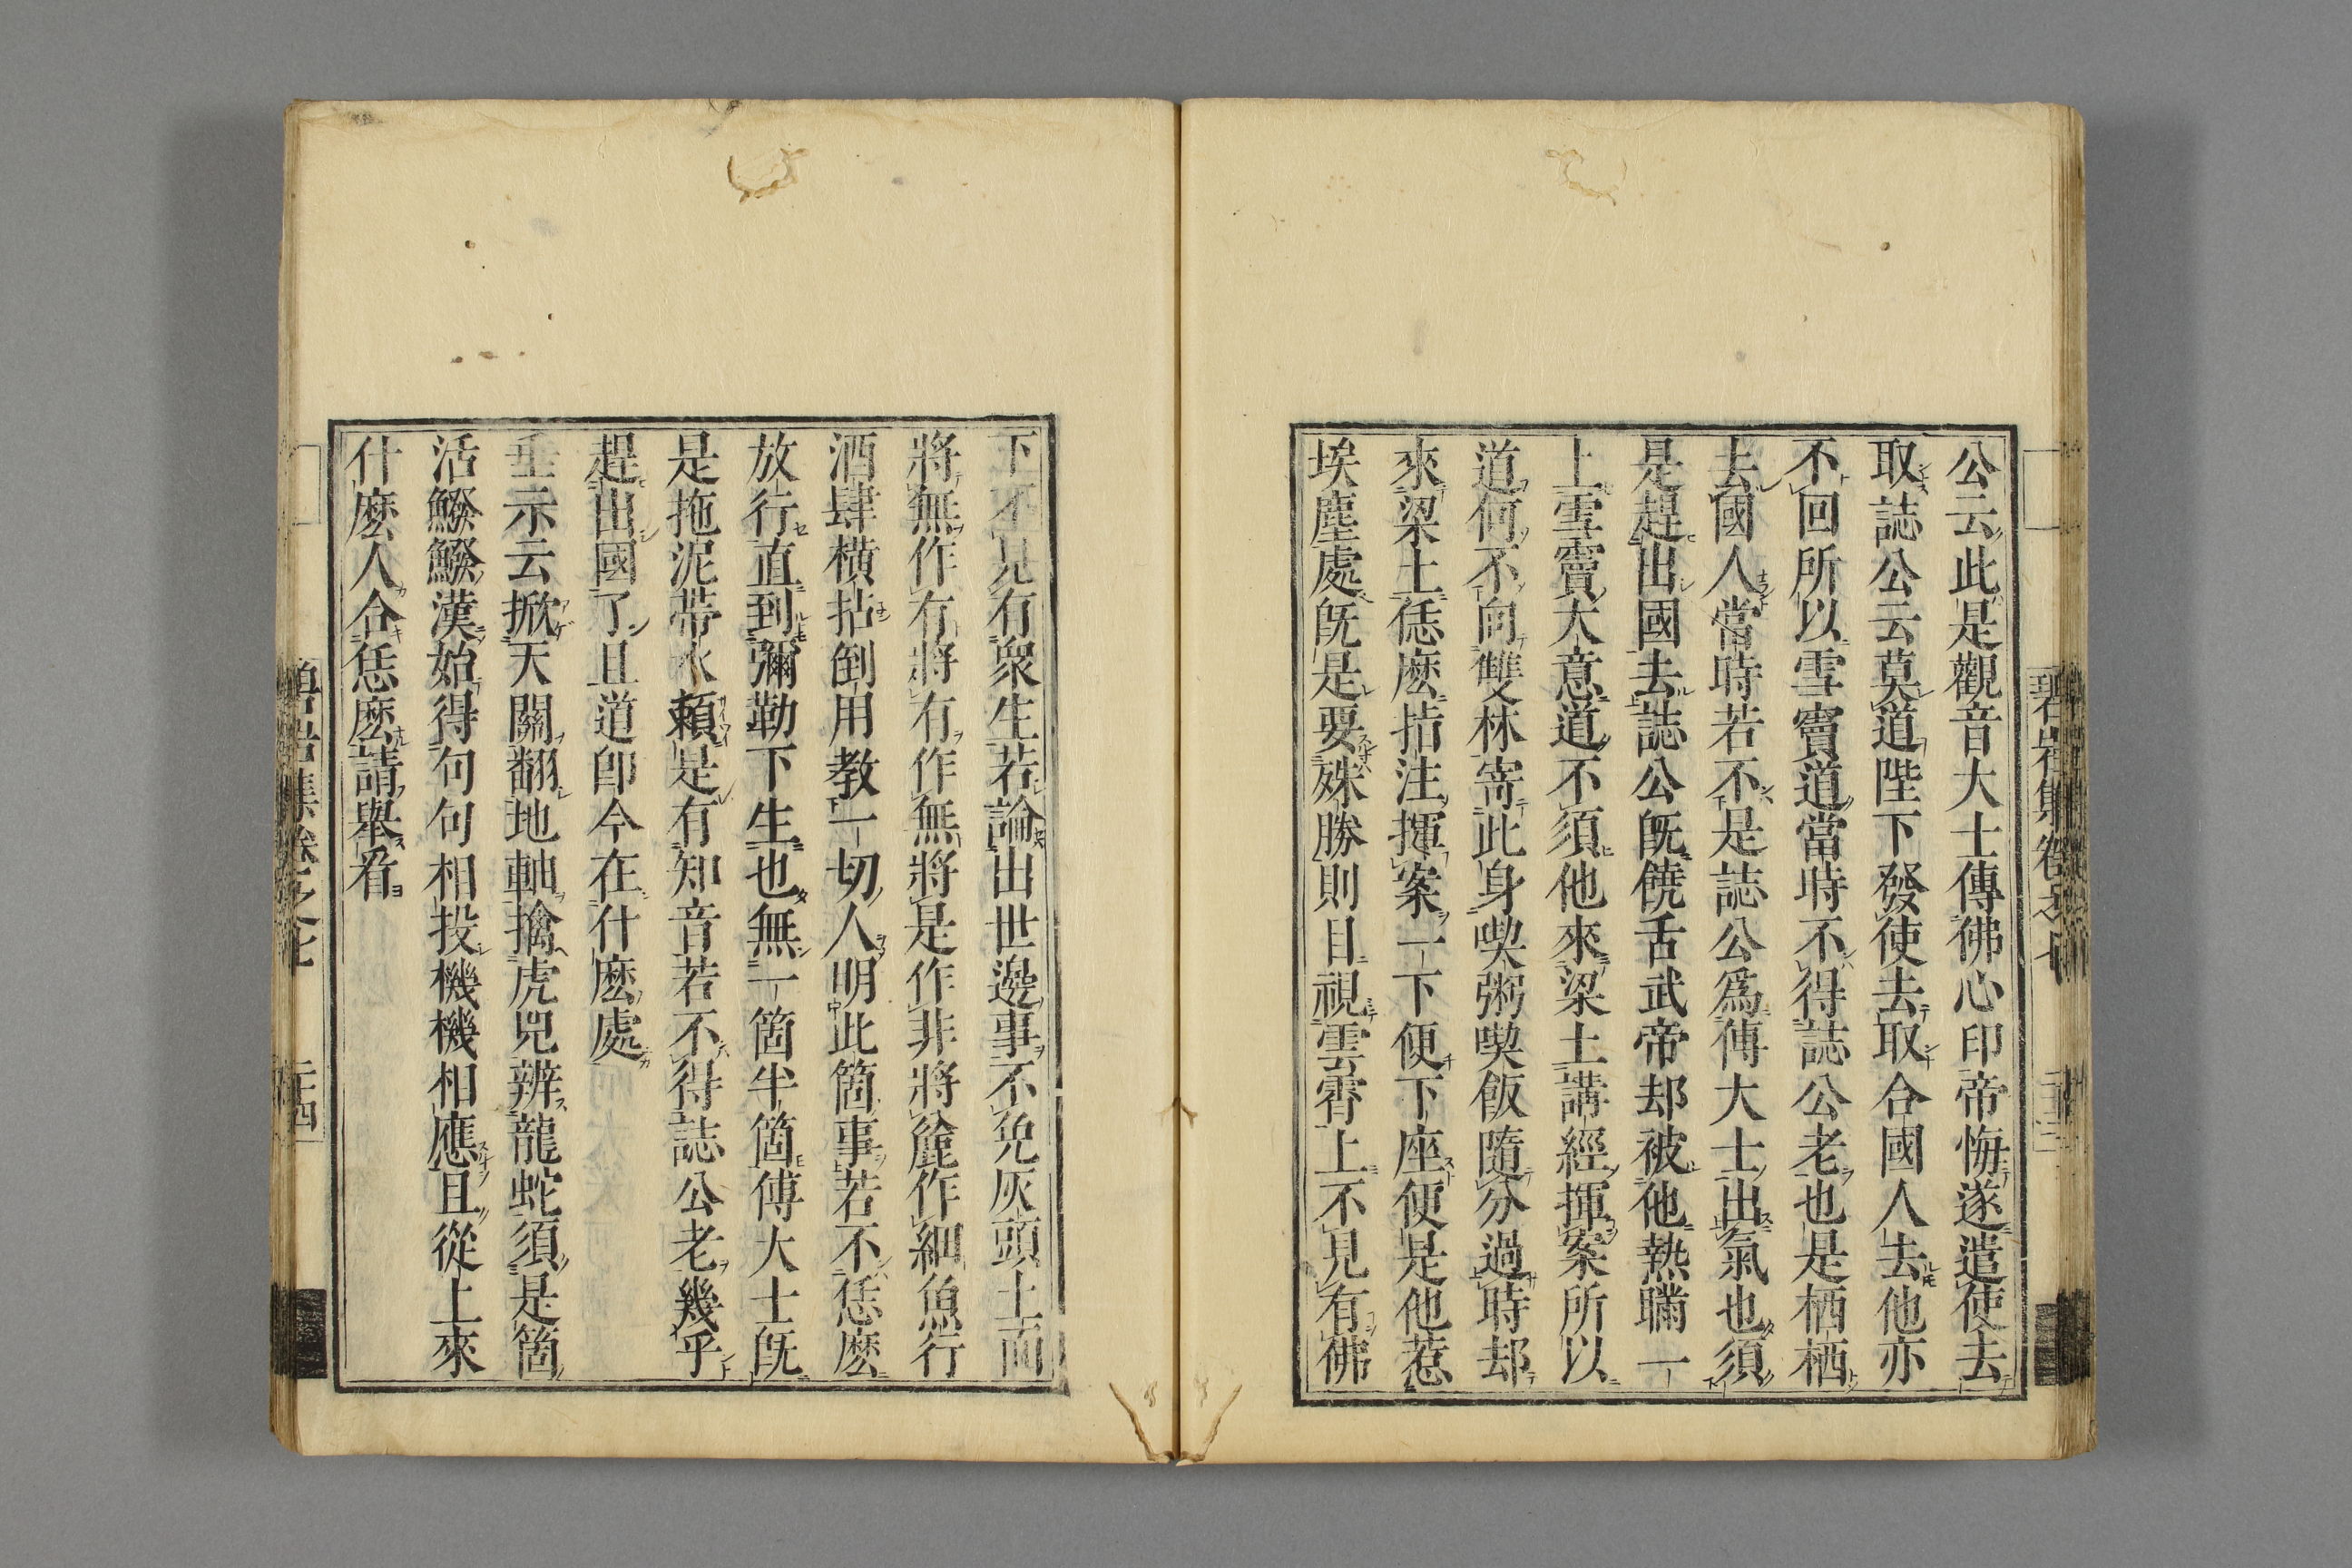 公云此是觀音大士傳佛心印帝悔遂遣使去
取誌公云莫道陛下發使去取合國人去他亦
不回所以雪竇道當時不得誌公老也是栖栖
去國人當時若不是誌公爲傅大士出氣也須
是趕出國去誌公既饒舌武帝却被他熱瞞一
上雪竇大意道不須他來梁土講經揮案所以
道何不向雙林寄此身喫粥喫飯隨分過時却
來梁土恁麽指注揮案一下便下座便是他惹
埃塵處既是要殊勝則目視雲霄上不見有佛
下不見有衆生若論出世邊事不免灰頭土面
將無作有將有作無將是作非將麄作細魚行
酒肆橫拈倒用教一切人明此箇事若不恁麽
放行直到彌勒下生也無一箇半箇傅大士既
是拖泥帶水頼是有知音若不得誌公老幾乎
趕出國了且道卽今在什麽處
垂示云掀天關翻地軸擒虎兕辨龍蛇須是箇
活鱍鱍漢始得句句相投機機相應且從上來
什麽人合恁麽請舉看
碧岩集卷之七
二十四